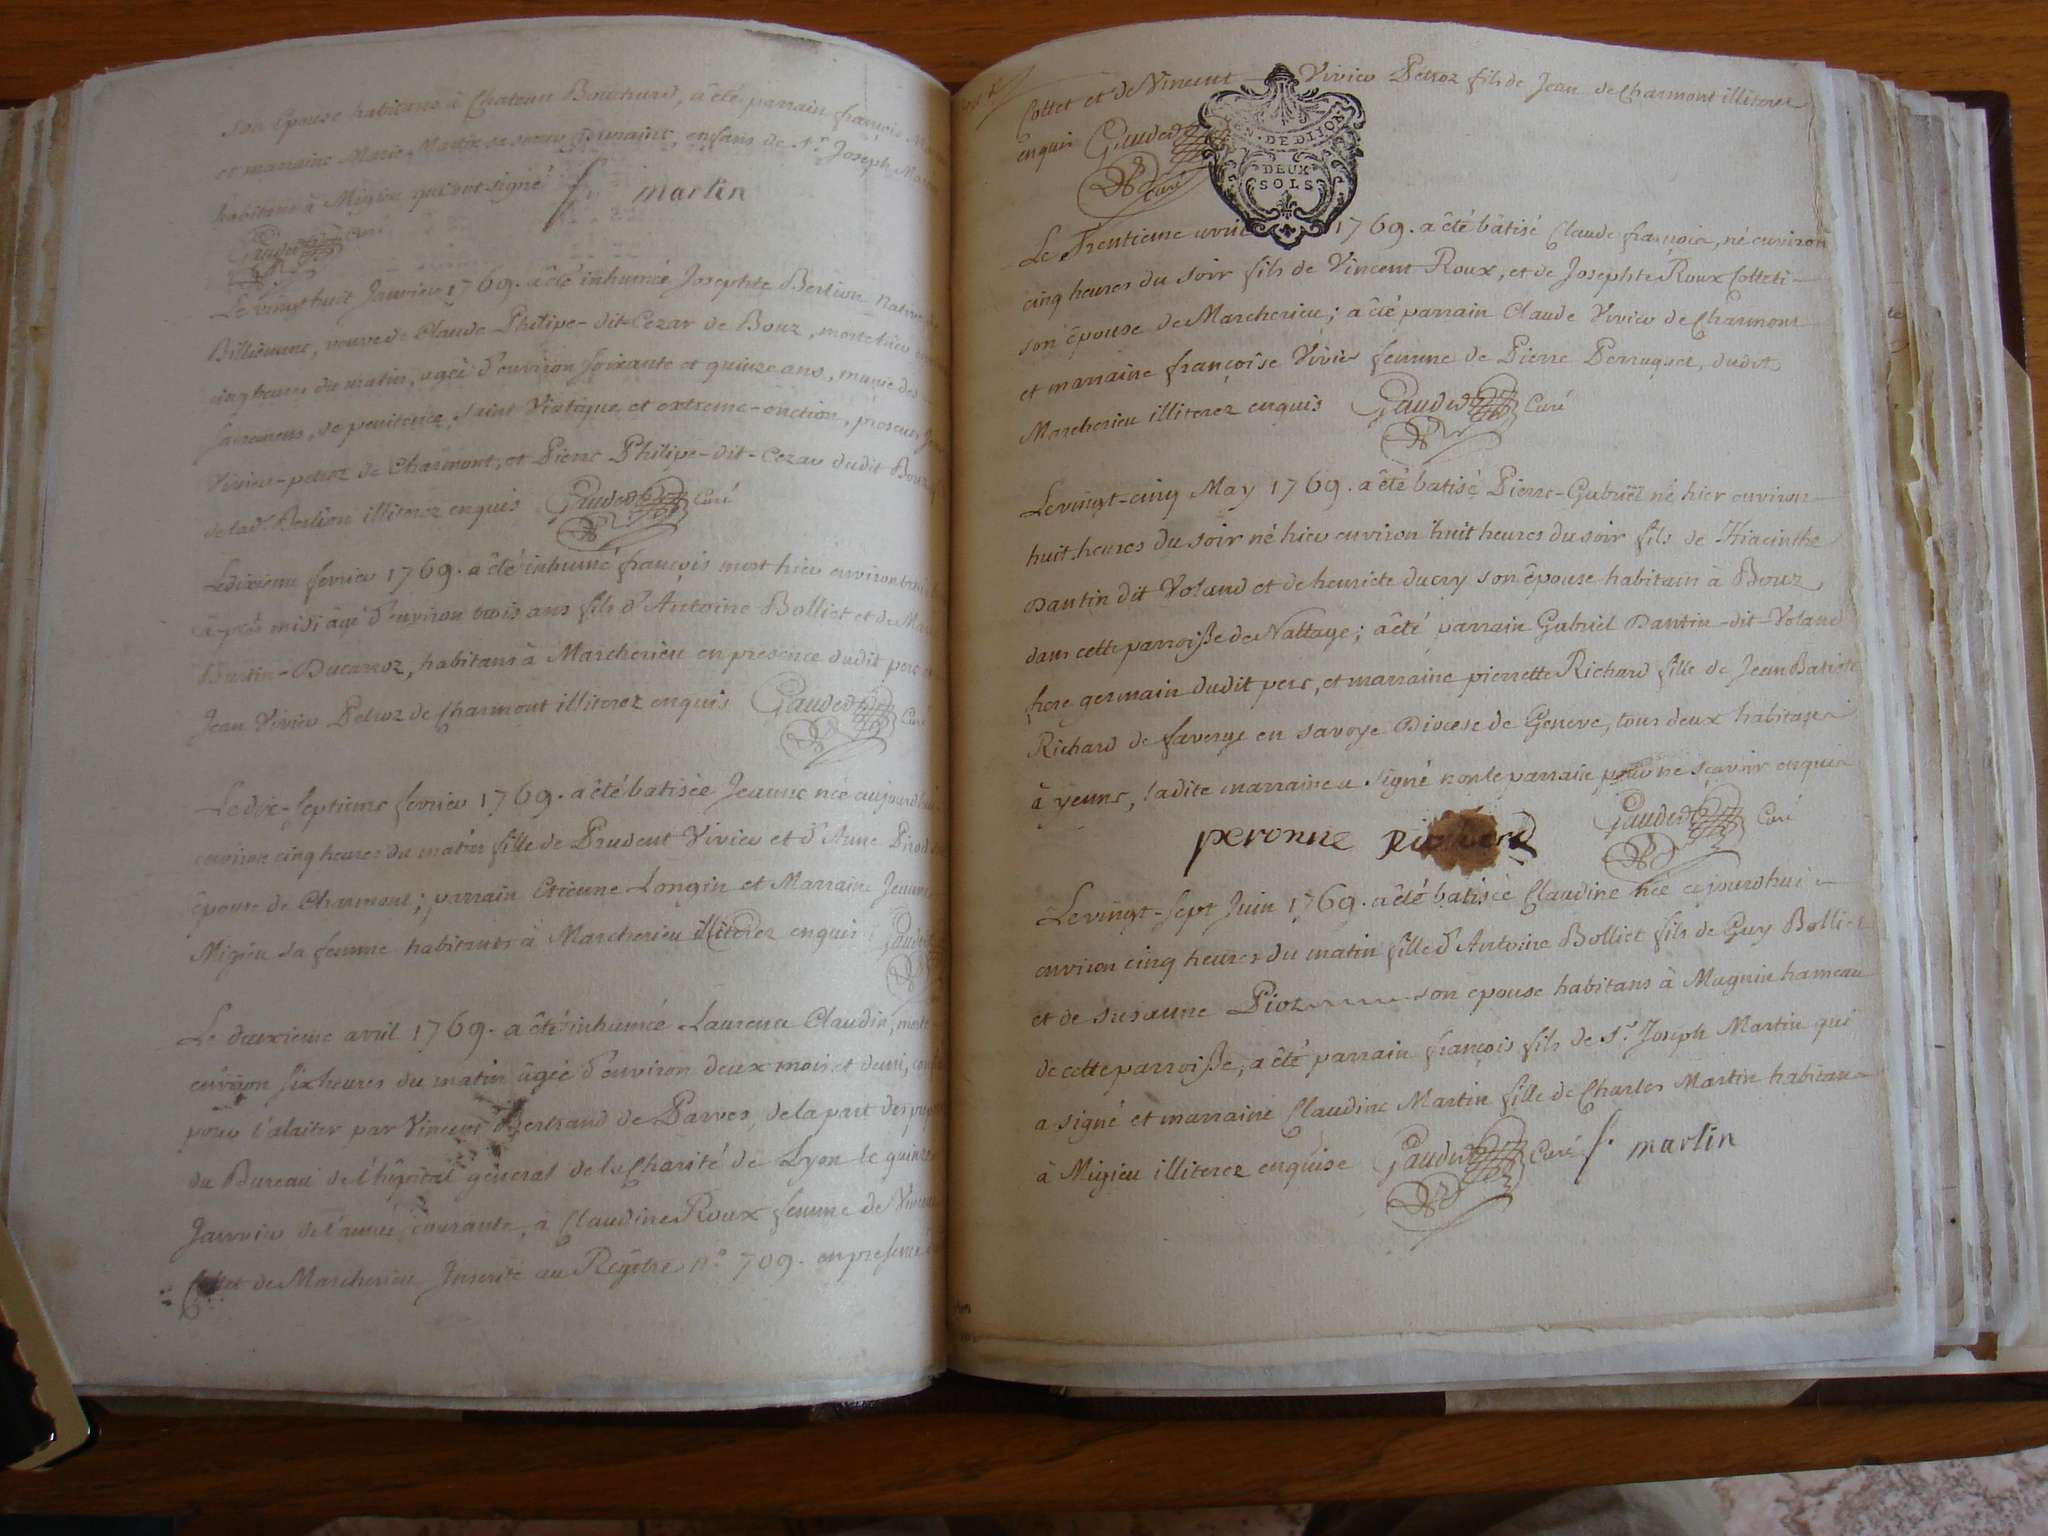 son épouse habitans à Chateau Bouchard, a été parrain françois
et marraine Marie Martin sa soeur enfans de Sr. Joseph
habitans à Migieu qui ont signé f. martin
Gaudet Curé
Le vingt huit Janvier 1769. a été inhumée Josephte Berlion Native de
Billieume, veuve de Claude Philipe-dit-Cezar de Bouz, morte hier
cinq heures du matin, agée d'environ soixante et quinze ans, munie des
sacremens, de penitence, saint Viatique, et extreme-onction, presens Jean
Vivier-petroz de Charmont, et Pierre Philipe-dit-Cezar dudit Bouz
de lad. Berlion illiterez enquis Gaudet Curé
Le dixieme fevrier 1769. a été inhumé françois mort hier environ trois
après midi âgé d'environ trois ans fils d'Antoine Bolliet et de
Dantin-Ducarroz, habitans à Marcherieu en presence dudit pere
Jean Vivier Petroz de Charmont illiterez enquis Gaudet Curé
Le dix-septieme fevrier 1769. a été batisée Jeanne née aujourdhui
environ cinq heures du matin fille de Prudent Vivier et d'Anne
épouse de Charmont; parrain Etienne Longin et Marraine Jeanne
Migieu sa femme habitants à Marcherieu illiterez enquis Gaudet
Le deuxieme avril 1769. a été inhumée Laurence Claudin, morte
environ six heures du matin âgée d'environ deux mois et demi,
pour l'alaiter par Vincent Bertrand de Parves, de la part des
du Bureau de l'hôpital général de la Charité de Lyon le quinze
Janvier de l'année courante, à Claudine Roux femme de Vincent
Collet de Marcherieu Inscrite au Régitre n.° 709. en presence
Collet et de Vincent Vivier Petroz fils de Jean de Charmont illiterez
enquis Gaudet Curé
GN. DE DIJON
DEUX
SOLS
Le Trentieme avril 1769. a été bâtisé Claude françois, né environ
cinq heures du soir fils de Vincent Roux, et de Josephte Roux Colleti-
son épouse de Marcherieu; a été parrain Claude Vivier de Charmont
et marraine françoise Vivier femme de Pierre Perruquet, dudit
Marcherieu illiterez enquis Gaudet Curé
Le vingt-cinq May 1769. a été batisé Pierre-Gabriël né hier environ
huit heures du soir né hier environ huit heures du soir fils de Hiacinthe
Dantin dit Voland et de henriete ducry son épouse habitans à Bouz
dans cette parroisse de Nattage; a été parrain Gabriel Dantin-dit-Voland
frere germain dudit pere, et marraine pierrette Richard fille de Jean Batiste
Richard de faverge en savoye Diocese de Geneve, tous deux habitans
à yenne, ladite marraine a signé non le parrain pour ne sçavoir enquis
peronne Richard Gaudet Curé
Le vingt-sept Juin 1769. a été batisée Claudine née cejourdhui
environ cinq heures du matin fille d'Antoine Bolliet fils de Guy Bolliet
et de susanne Pioz son epouse habitans à Magnin hameau
de cette parroisse, a été parrain françois fils de Sr. Joseph Martin qui
a signé et marraine Claudine Martin fille de Charles Martin habitans
à Migieu illiterez enquise Gaudet Curé f. martin